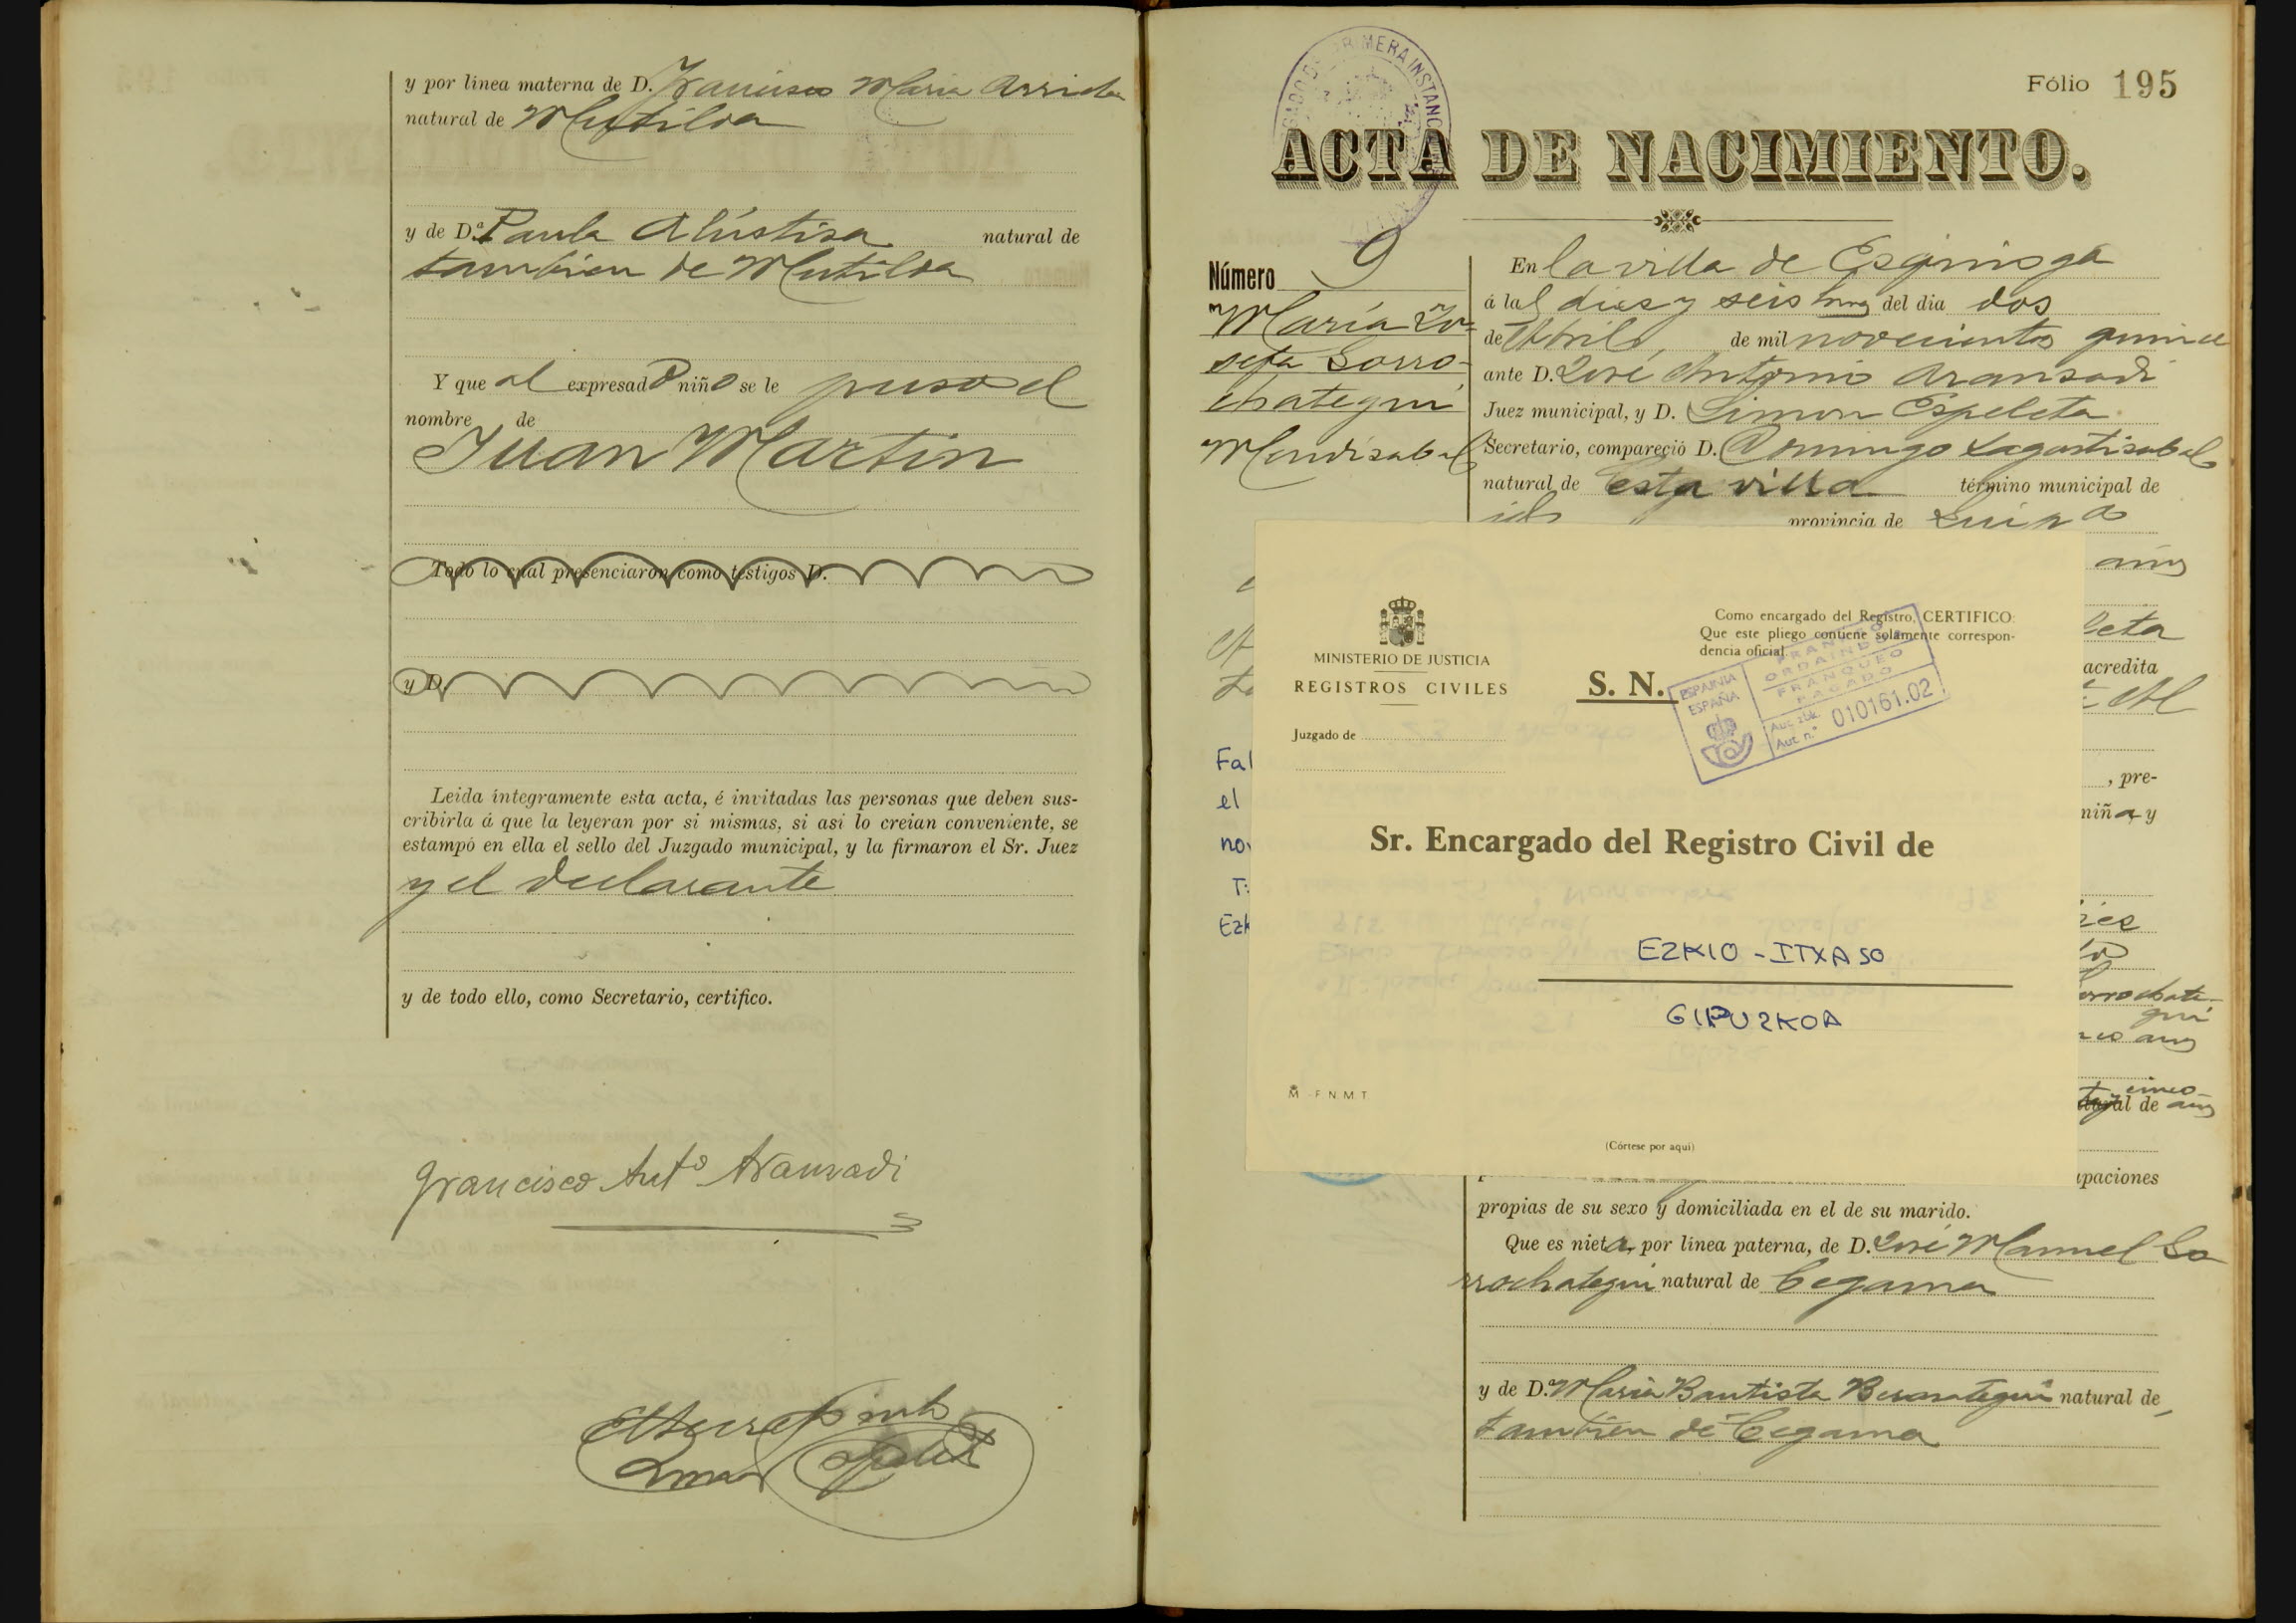 y por línea materna de D. Francisco Maria Arriola
natural de Mutiloa
y de D.ª Paula Alústiza natural de
tambien de Mutiloa
Y que al expresado niño se le puso el
nombre de
Juan Martin
Todo lo cual presenciaron como testigos D.
y D.
Leida íntegramente esta acta, é invitadas las personas que deben sus-
cribirla á que la leyeran por si mismas, si asi lo creian conveniente, se
estampó en ella el sello del Juzgado municipal, y la firmaron el Sr. Juez
y el declarante
y de todo ello, como Secretario, certifico.
Francisco Ant.º Aranzadi
Fólio 195
ACTA DE NACIMIENTO.
Número 9
María Jo-
sefa Sorro-
chategui
Mendizabal
En la villa de Ezquioga
á las diez y seis horas del dia dos
de Abril de mil novecientos quince
ante D. José Antonio Aranzadi
Juez municipal, y D. Simon Espeleta
Secretario, compareció D. Domingo Lagastizabal
natural de esta villa término municipal de
id provincia de
años
leta
acredita
, pre-
niña y
Fal
el
nov
T:
Ezk
MINISTERIO DE JUSTICIA
REGISTROS CIVILES
Juzgado de
S. N.
Como encargado del Registro, CERTIFICO:
Que este pliego contiene solamente correspon-
dencia oficial
ESPAINIA
ESPAÑA
FRANKEO
ORDAINDUA
FRANQUEO
PAGADO
Aut. zbk.
Aut. n.º 010161.02
Sr. Encargado del Registro Civil de
EZKIO - ITXASO
GIPUZKOA
F.N.M.T.
(Córtese por aquí)
orrochate-
gui
años
cinco
al de años
upaciones
propias de su sexo y domiciliada en el de su marido.
Que es nieta, por línea paterna, de D. José Manuel So
rrochategui natural de Cegama
y de D.ª Maria Bautista Berasategui natural de
tambien de Cegama